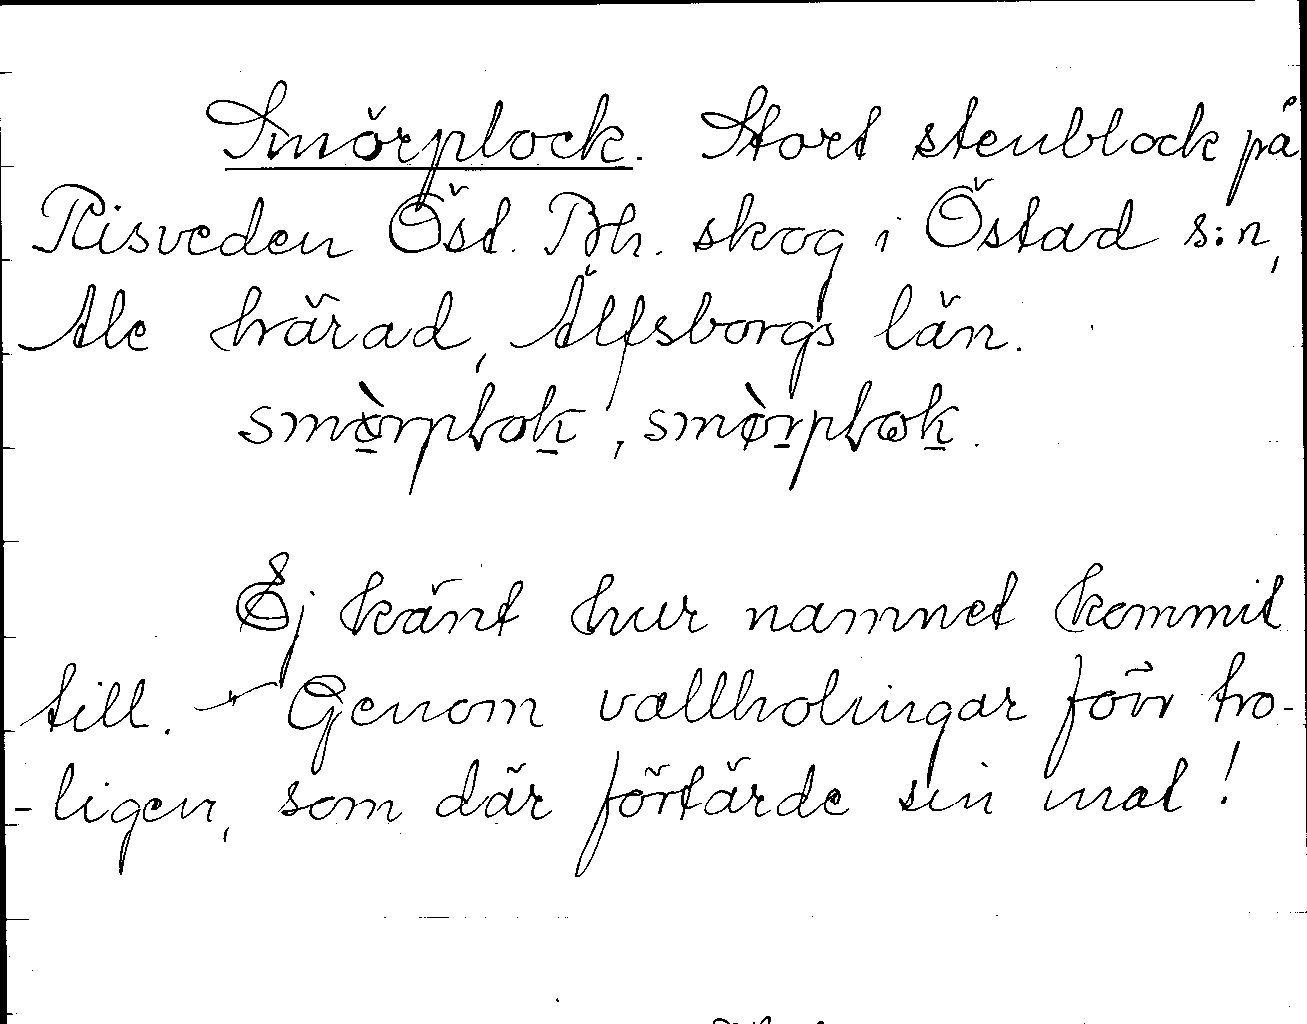 Smörplock. Stort stenblock på
Risveden Öst. Bh. skog i Östad s:n,
Ale härad, Älfsborgs län.
smörplok, smörplok.
Ej känt hur namnet kommit
till. - Genom vallholingar förr tro-
-ligen, som där förtärde sin mat!